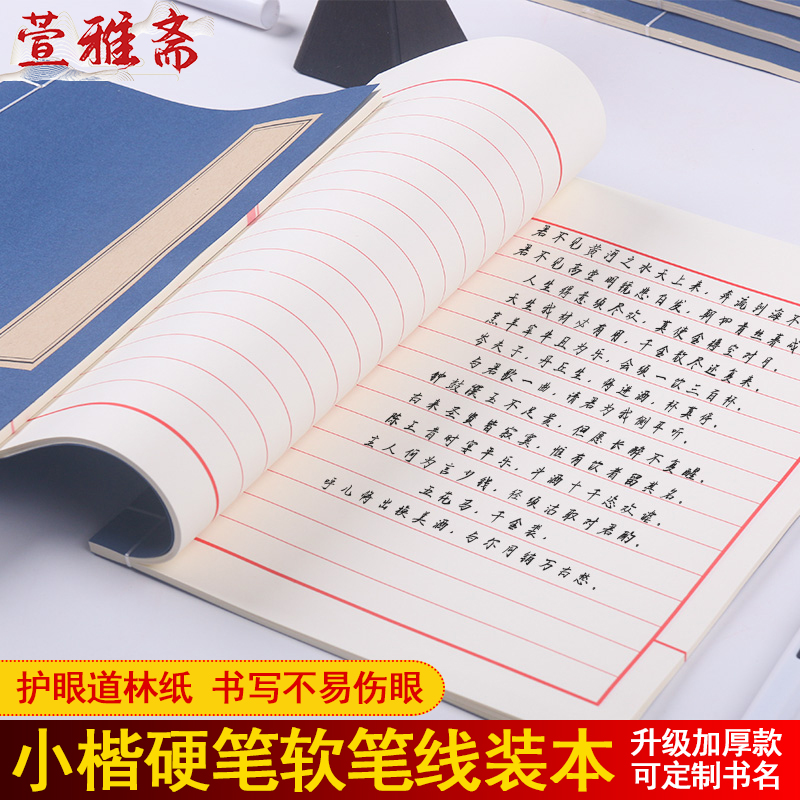 萱雅斋
君不见黄河之水天上来，奔流到海不
君不见高堂明镜悲白发，朝如青丝暮成
人生得意须尽欢，莫使金樽空对月。
天生我材必有用，千金散尽还复来。
烹羊宰牛且为乐，会须一饮三百杯。
岑夫子，丹丘生，将进酒，杯莫停。
与君歌一曲，请君为我侧耳听。
钟鼓馔玉不足贵，但愿长醉不复醒。
古来圣贤皆寂寞，惟有饮者留其名。
陈王昔时宴平乐，斗酒十千恣欢谑。
主人何为言少钱，径须沽取对君酌。
五花马，千金裘，
呼儿将出换美酒，与尔同销万古愁。
护眼道林纸 书写不易伤眼
小楷硬笔软笔线装本
升级加厚款
可定制书名